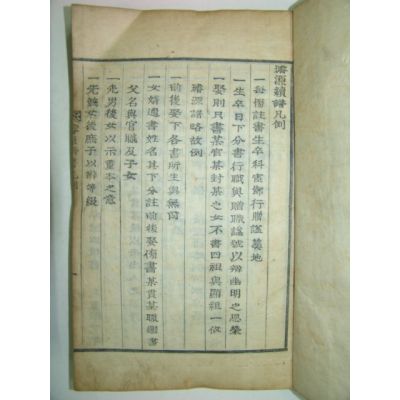 璿源續譜凡例
一每傍註書生卒科宦鄕行贈諡墓地
一生卒日下分書行職與贈職諡號以辨幽明之恩榮
一娶則只書某官某封某之女不書四祖與顯祖一倣
璿源譜略故例
一前後娶下各書所生與無育
一女婿適書姓名其下分註前後娶備書某貫某職繼書
父名與官職及子女
一先男後女以示重本之意
一先嫡女後庶子以辨等級